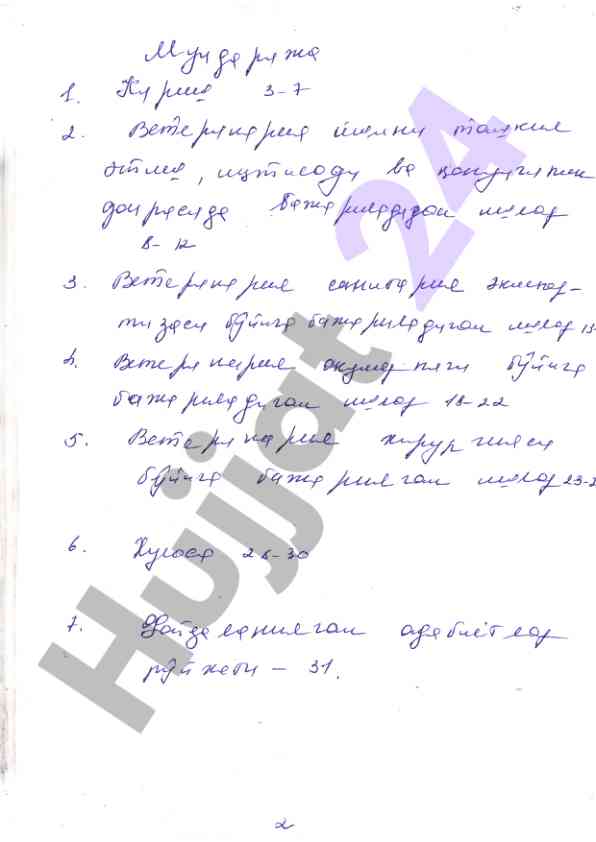 Мундарижа
1. Кириш 3-7
2. Ветеринария ишини ташкил
этиш, иқтисоди ва қонунчилик
доирасида бажариладиган ишлар
8-12
3. Ветеринария санитария экспер-
тизаси бўйича бажариладиган ишлар 13-
4. Ветеринария акушерлиги бўйича
бажариладиган ишлар 18-22
5. Ветеринария хирургияси
бўйича бажарилган ишлар 23-2
6. Хулоса 26-30
7. Фойдаланилган адабиётлар
рўйхати - 31.
2
Hujjat 24